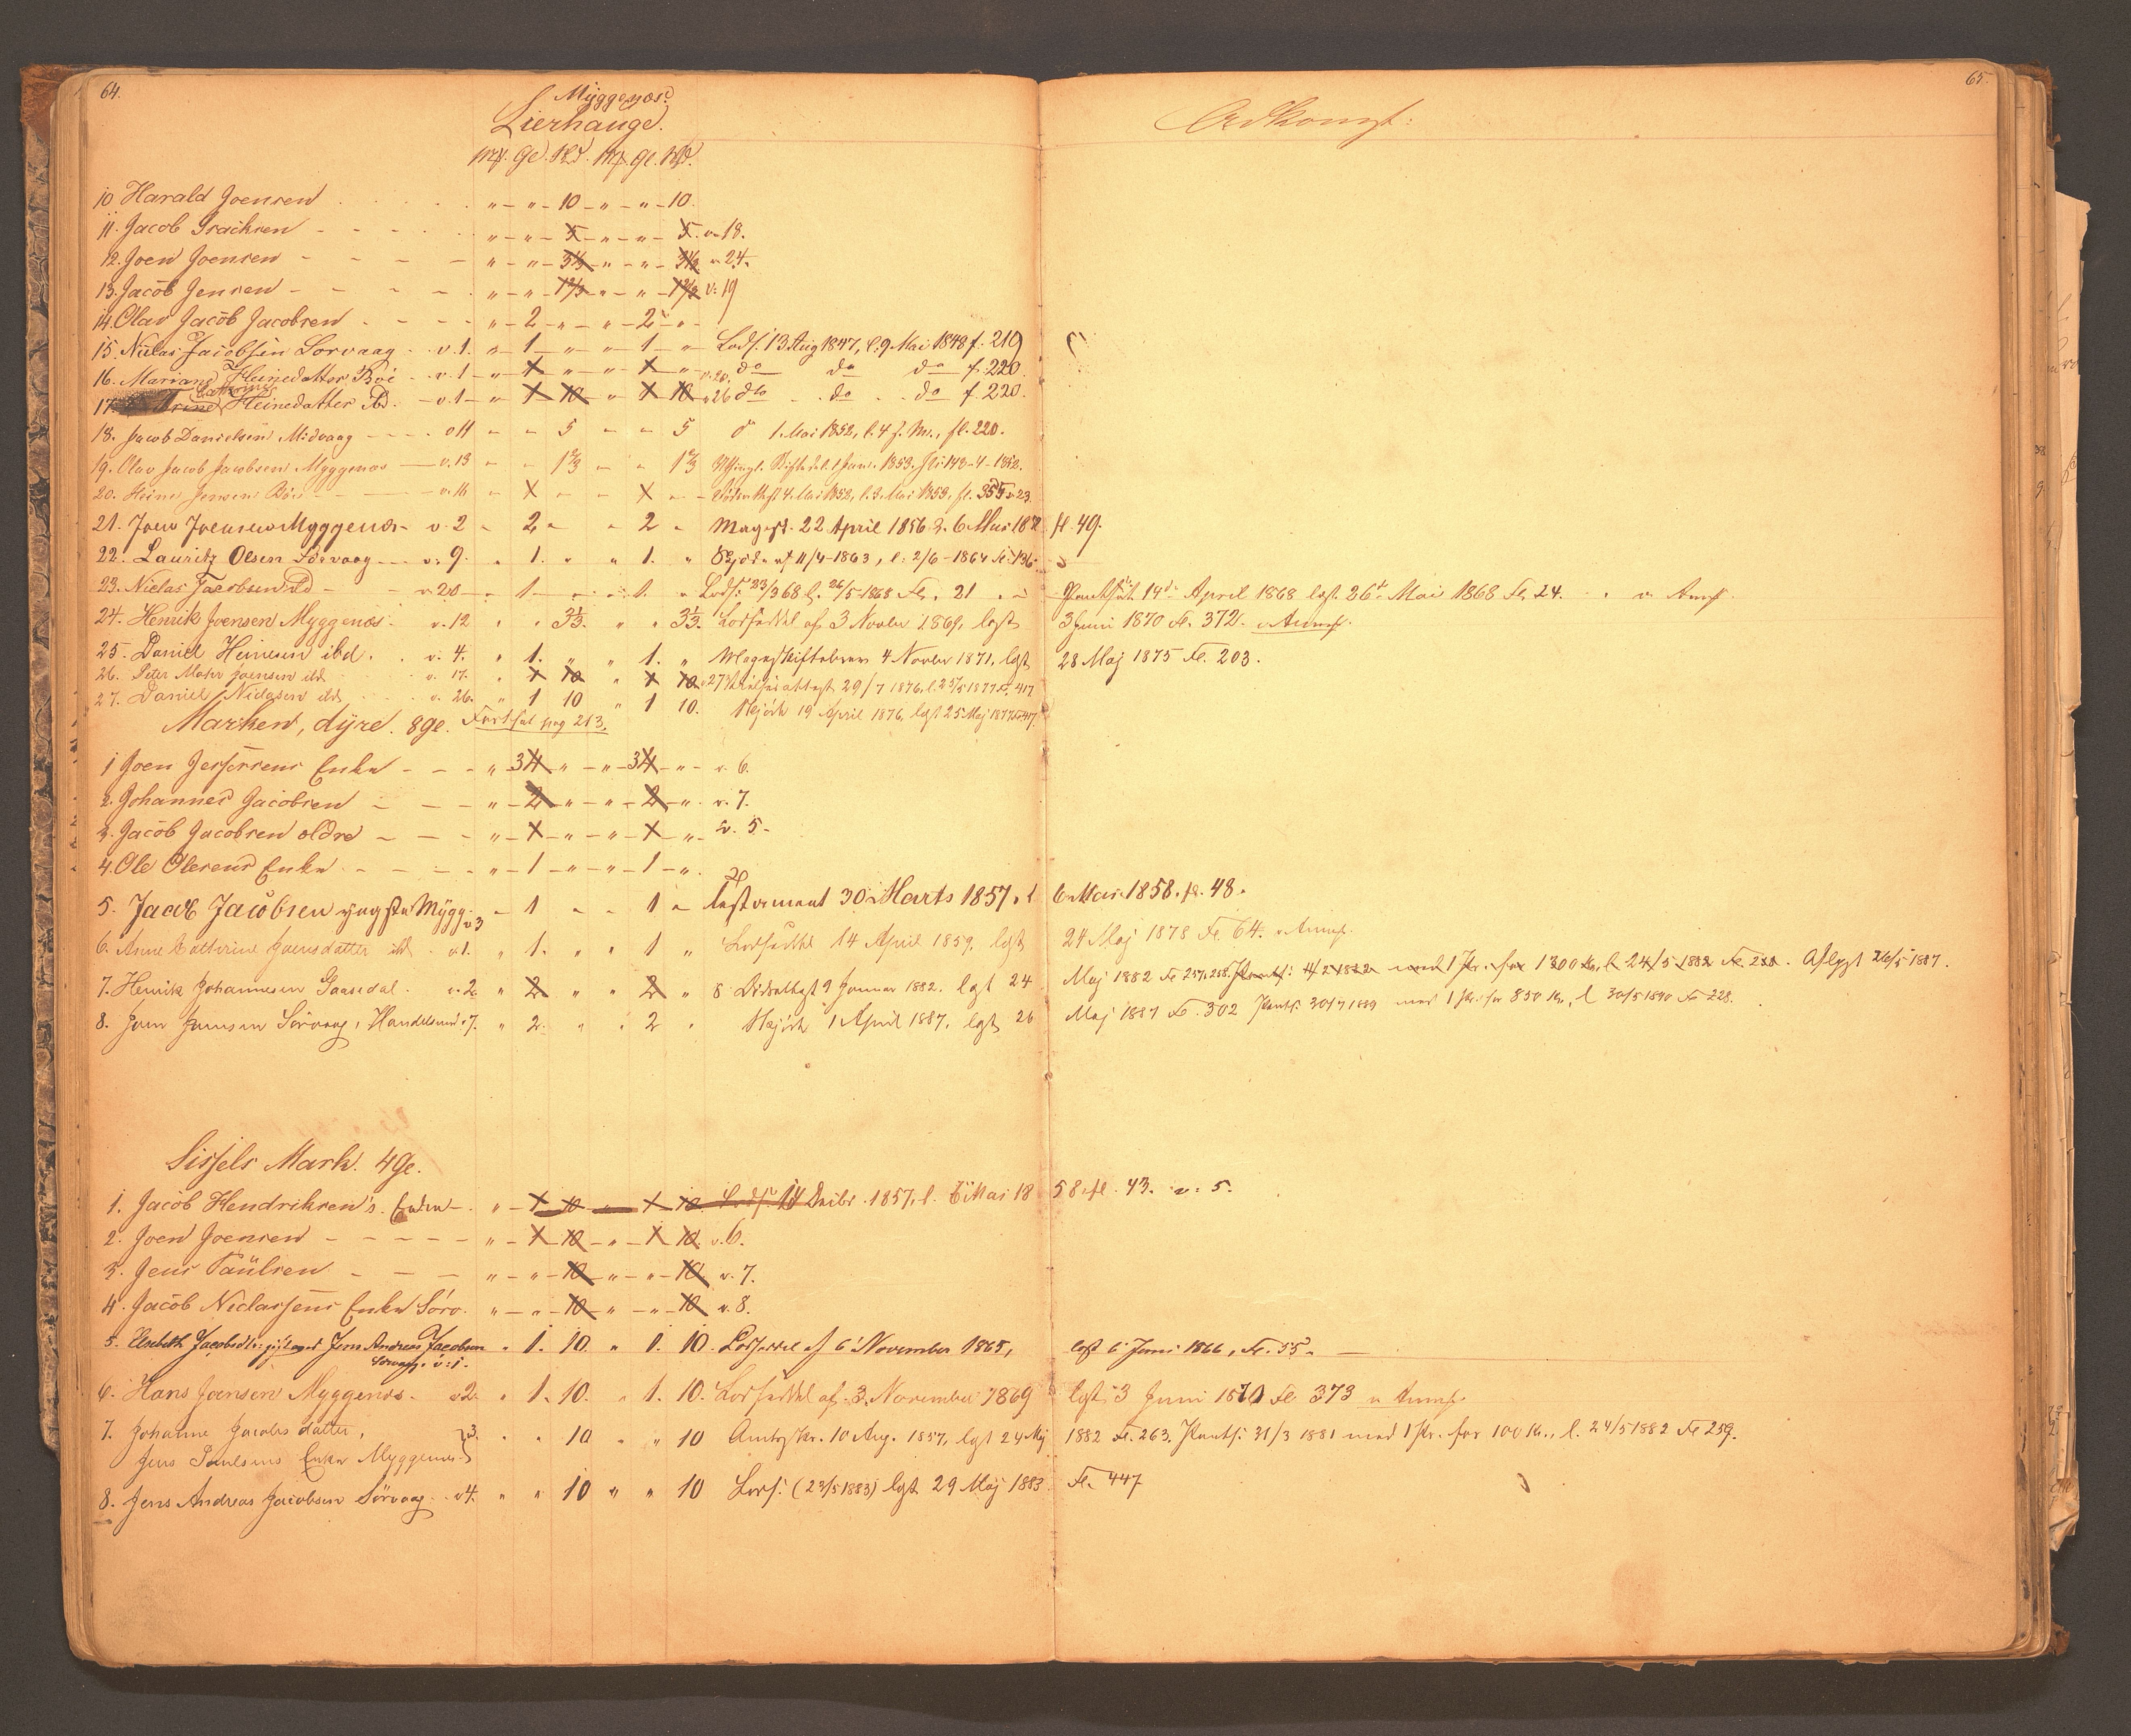 64.
65.
Myggenæs.
Lierhauge.
Adkomst:
Mk. Gl. Sk. Mk. Gl. Sk.
10 Harald Joensen . . . . . „ – „ – 10 – „ – „ – 10.
11. Jacob Isachsen – – – – „ – „ – 5 – „ – „ – 5. v. 18.
12. Joen Joensen – – – – „ – „ – 3⅓ – „ – „ – 3⅓. v. 24.
13. Jacob Jensen – – – – „ – „ – 1⅔ – „ – „ – 1⅔ v: 19
14. Olav Jacob Jacobsen . – – – „ – 2 – „ – „ – 2 – „ –
15. Niclas Jacobsen Sorvaag . . v. 1. „ – 1 – „ – „ – 1 – „ Lods. 13 Aug 1847, l. 9 Mai 1848 f. 219
16. Mariane Heinedatter Bøe – v. 1 – „ 1 – „ – „ – 1 – „ v. 20. do do do f. 220.
17. Heinedatter ibd. – v. 1 – „ 1 10 „ 1 10 v 26 do . . do . . do f. 220.
18. Jacob Danielsen Midvaag – – – . v 11 „ „ 5 „ „ 5 1. Mai 1852, l. 4 f. M., fl. 220.
19. Olav Jacob Jacobsen Myggenæs – v. 13 „ „ 1⅔ „ „ 1⅔ 1 Juni. 1853. fl. 143-4-1852.
20. Heine Jensen Bøe – – – v. 16 „ 1 „ „ 1 „ 4. Mai 1852, l. 3. Mai 1853, fl. 355 v 23.
21. Joen Joensen Myggenæs – v. 2 „ 2 „ „ 2 „ Mages. 22 April 1856 l. 6 Mai 18 fl. 49.
22. Lauritz Olsen Sørvaag – – v. 9. „ 1. „ „ 1. „ Skjøde af 11/4-1863, l: 2/6-1864 fl: 136.
23. Niclas Jacobsen ibd – – v. 20 – „ 1 „ „ 1. „ Lods: 23/3 68 l. 26/5-1868 Fl. 21 Pantsæt. 14de April 1868 læst 26de Mai 1868 Fl. 24. . v Anmf.
24. Henrik Joensen Myggenæs – v. 12 „ „ 3⅓. „ „ 3⅓. Lodseddel af 3 Novber 1869, læst 3 Juni 1870 Fl. 372. v Anmf.
25. Daniel Heinesen ibd. . . v. 4. „ 1. „ „ 1. „ Mageskiftebrev 4 Novber 1871, lgst 28 Maj 1875 Fl. 203.
26. Peter Mohr Joensen ibd v. 17. „ 1 10 „ 1 10 v. 27 29/7 1876, l. 25/5 1877 Fl. 417
27. Daniel Niclasen ibd v. 26. „ 1 10 „ 1 10. Skjøde 19 April 1876, lgst 25 Maj 1877 Fl 417.
Marken, dyre. 8 ge. Fortsat pag 213.
1 Joen Jespersens Enke – – – „ 3¼ „ – „ – 3¼ – „ – v. 6.
2. Johannes Jacobsen – – – „ – 2 – „ – „ – 2 – „ . v. 7.
3. Jacob Jacobsen ældre – – – „ – 1 – „ – „ – 1 – „ – v. 5 –
4. Ole Olesens Enke . – – – „ – 1 – „ – „ – 1 – „.
5. Jacob Jacobsen yngste Mygg. v 3 – 1 „ „ 1 „ Testament 30 Marts 1857, l 6 Mai 1858. fl. 48.
6. Anne Cathrine Joensdatter ibd . v. 1. „ 1. „ „ 1 „ Lodseddel 14 April 1859, lgst 24 Maj 1878 Fl. 64. v Anmf.
7. Henrik Johannesen Gaasedal . v. 2. „ 2 „ „ 2 „ 8 9 Januar 1882. lgst 24 Maj 1882 Fl 257, 258. Pants: 11/2 1882 med 1 Pr. for 1300 Kr., l. 24/5 1882 Fl. 258. Aflyst 26/5 1887.
8. Joen Joensen Sørvaag, Handelsmd v. 7. „ 2. „ „ 2 „ Skjøde 1 April 1887, lgst 26 Maj 1887 Fl. 302 Pants: 30/7 1889 med 1 Pr. for 850 Kr., l 30/5 1890 Fl 228.
Sissels Mark. 4 Ge.
1. Jacob Hendriksen's. Enke – . „ – 1 – 10 – „ – 1 – 10. Lods. 14 Decbr. 1857, l. 6 Mai 18 58 fl. 43. v: 5.
2. Joen Joensen – – – – – „ – 1 – 10 – „ – 1 10. v. 6.
3. Jens Paulsen – – – – „ – „ – 10 – „ – „ – 10. v. 7.
4. Jacob Niclassens Enke Sörv. „ – „ – 10 – „ – „ – 10 v. 8.
5. Elsebeth Jacobsdtr: gift med Jens Andreas Jacobsen Sørvaag. v: 1. „ 1. 10. „ 1. 10. Lodseddel af 6' November 1865, læst 6 Juni 1866, Fl. 55. –
6. Hans Joensen Myggenæs . v 2. „ 1. 10. „ 1. 10. Lodseddel af 3. November 1869 lgst 3 Juni 1870 Fl 373 v Anmf.
7. Johanne Jacobsdatter,
Jens Poulsens Enke Myggenæs } v 3. „ „ 10 „ „ 10 Amtsskr. 10 Aug. 1857, lgst 24 Maj 1882 Fl. 263. Pants: 31/3 1881 med 1 Pr. for 100 Kr., l. 24/5 1882 Fl 259.
8. Jens Andreas Jacobsen Sørvaag . v 4. „ „ 10 „ „ 10 Lods. (23/5 1883) lgst 29 Maj 1883 Fl. 447